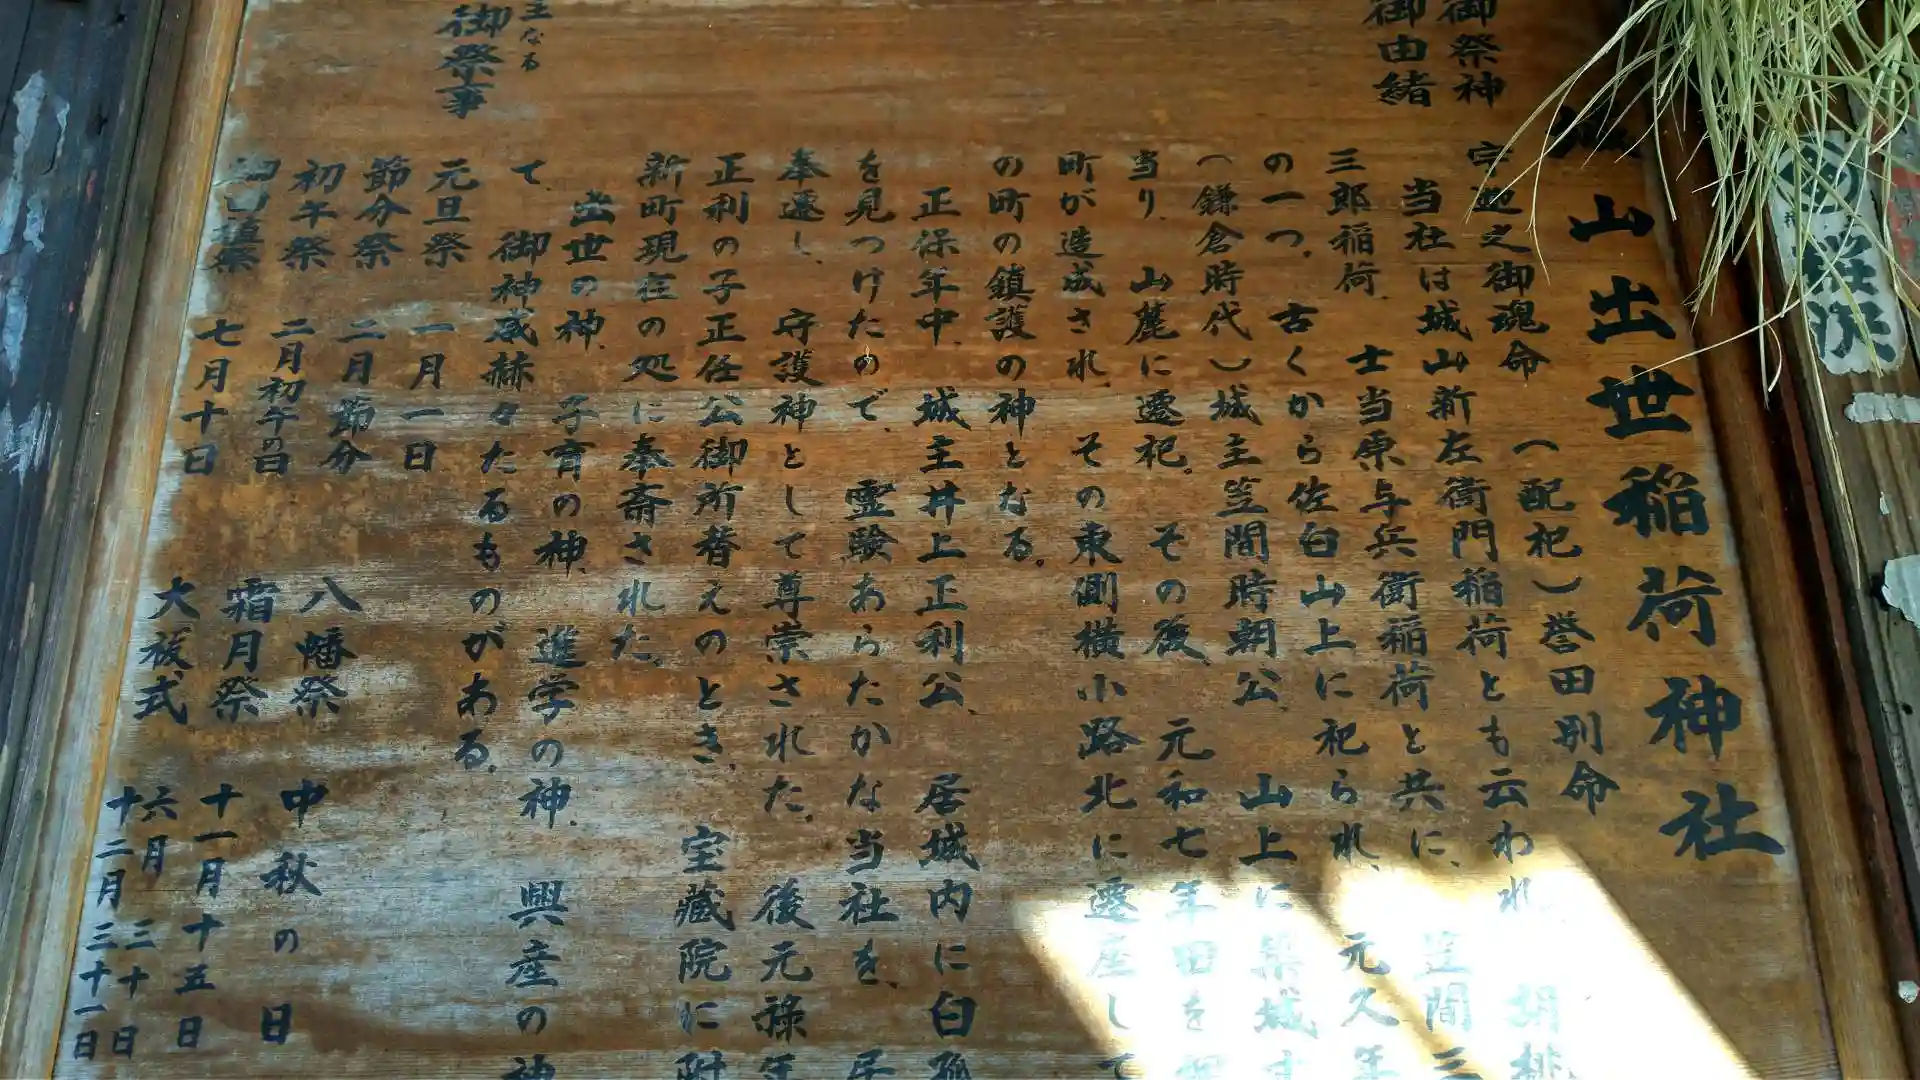 城山出世稲荷神社
御祭神
宇迦之御魂命 (配祀)誉田別命
御由緒
当社は城山新左衛門稲荷とも云われ、胡桃
三郎稲荷、士当原与兵衛稲荷と共に、笠間三
の一つ。古くから佐白山上に祀られ、元久年
(鎌倉時代)城主笠間時朝公、山上に築城す
当り、山麓に遷祀。その後、元和七年田を
町が造成され、その東側横小路北に遷座して
の町の鎮護の神となる。
正保年中、城主井上正利公、居城内に白狐
を見つけたので、霊験あらたかな当社を、居
奉遷し、守護神として尊崇された。後元禄年
正利の子正任公御所替えのとき、宝蔵院に附
新町現在の処に奉斎された。
出世の神、子育の神、進学の神、興産の神
て、御神威赫々たるものがある。
主なる
御祭事
元旦祭 一月一日
節分祭 二月節分
初午祭 二月初午の日
御田植祭 七月十日
八幡祭 中秋の日
霜月祭 十一月十五日
大祓式 六月三十日
十二月三十一日
荘次